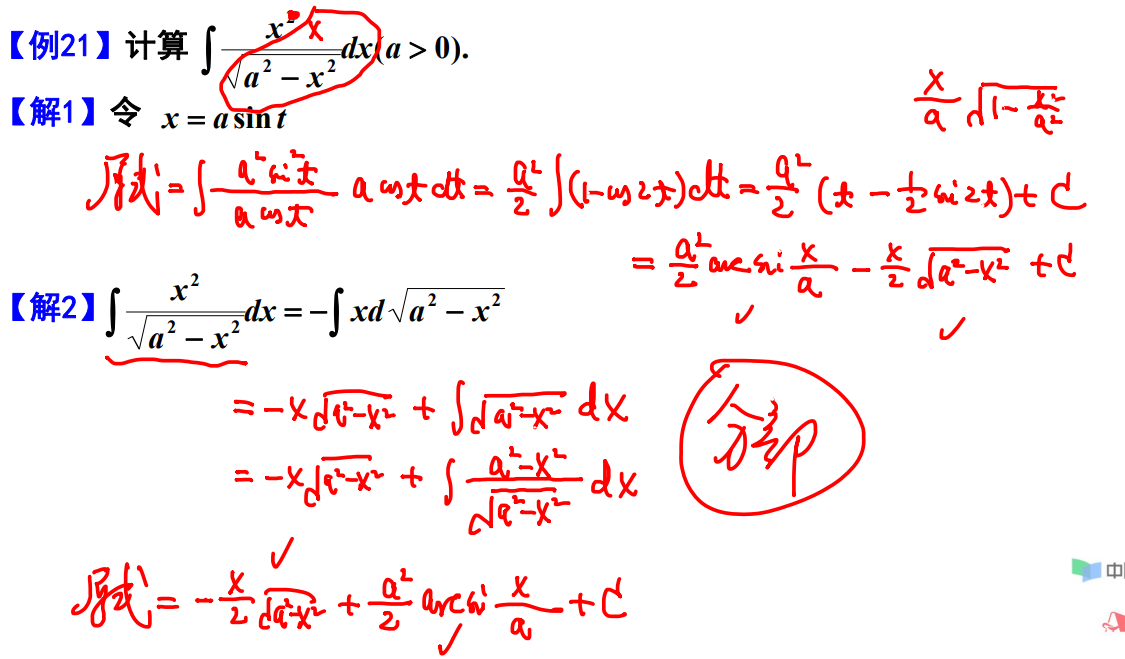 【例21】计算 ∫ x² x / √(a² − x²) dx (a > 0).
【解1】令 x = a sin t
x/a √(1 − x²/a²)
原式 = ∫ a² sin²t / (a cos t) a cos t dt = a²/2 ∫(1 − cos 2t) dt = a²/2 (t − 1/2 sin 2t) + C
= a²/2 arcsin x/a − x/2 √(a² − x²) + C
【解2】∫ x² / √(a² − x²) dx = −∫ x d√(a² − x²)
= −x√(a² − x²) + ∫ √(a² − x²) dx
分部
= −x√(a² − x²) + ∫ (a² − x²) / √(a² − x²) dx
原式 = −x/2 √(a² − x²) + a²/2 arcsin x/a + C
中